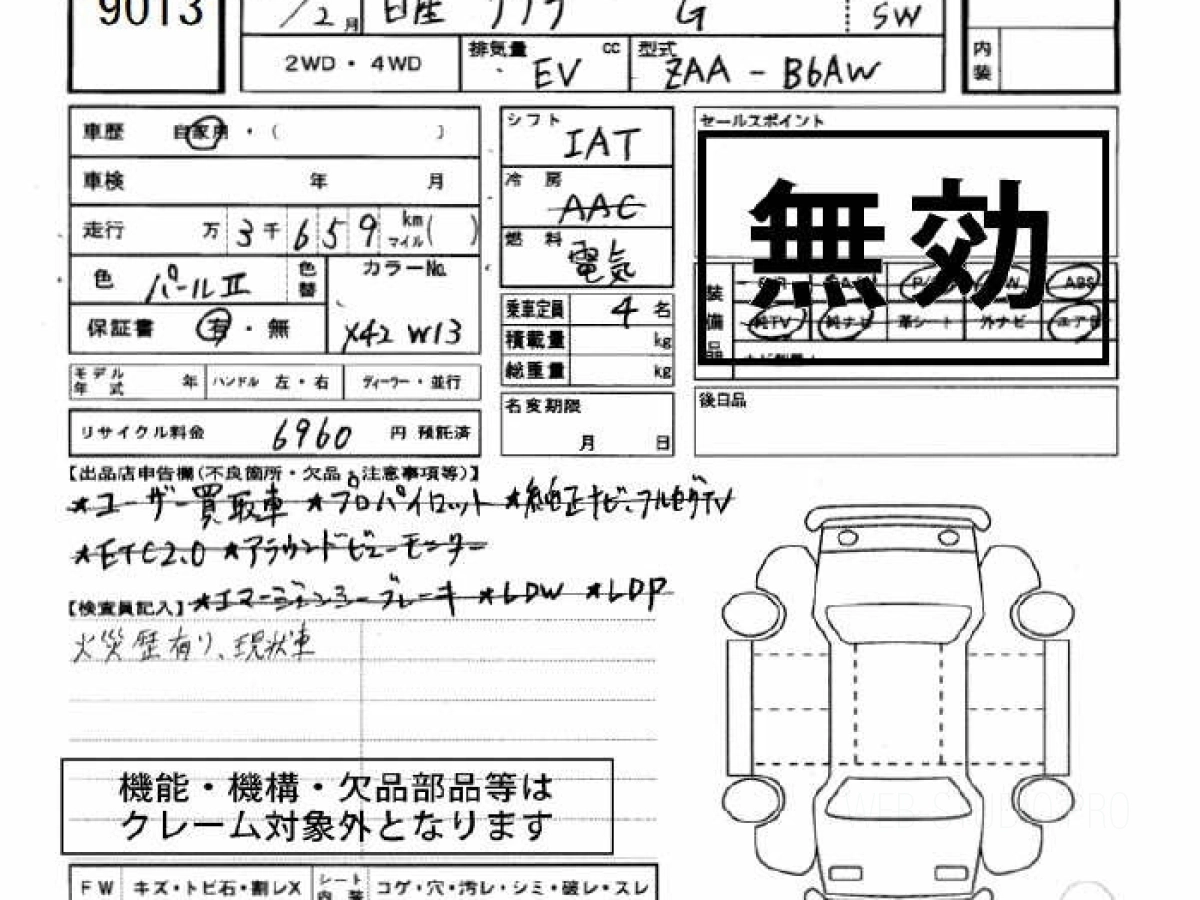 9013
/2月 日産 リーフ G SW
2WD・4WD 排気量 EV cc 型式 ZAA-B6AW 内装
車歴 自家用・( )
車検 年 月
走行 万 3千 6 5 9 km マイル( )
色 パールII 色替 カラーNo.
保証書 有・無 X42 W13
モデル年式 年 ハンドル 左・右 ディーラー・並行
リサイクル料金 6960 円 預託済
シフト IAT
冷房 AAC
燃料 電気
乗車定員 4 名
積載量 kg
総重量 kg
名変期限
月 日
セールスポイント
無効
装備品 ABS
純TV 純ナビ 革シート 外ナビ エアB
後日品
【出品店申告欄(不良箇所・欠品・注意事項等)】
★ユーザー買取車 ★プロパイロット ★純正ナビ、フルセグTV
★ETC2.0 ★アラウンドビューモニター
★エマージェンシーブレーキ ★LDW ★LDP
【検査員記入】
火災歴有り、現状車
機能・機構・欠品部品等は
クレーム対象外となります
FW キズ・トビ石・割レX シート内装 コゲ・穴・汚レ・シミ・破レ・スレ